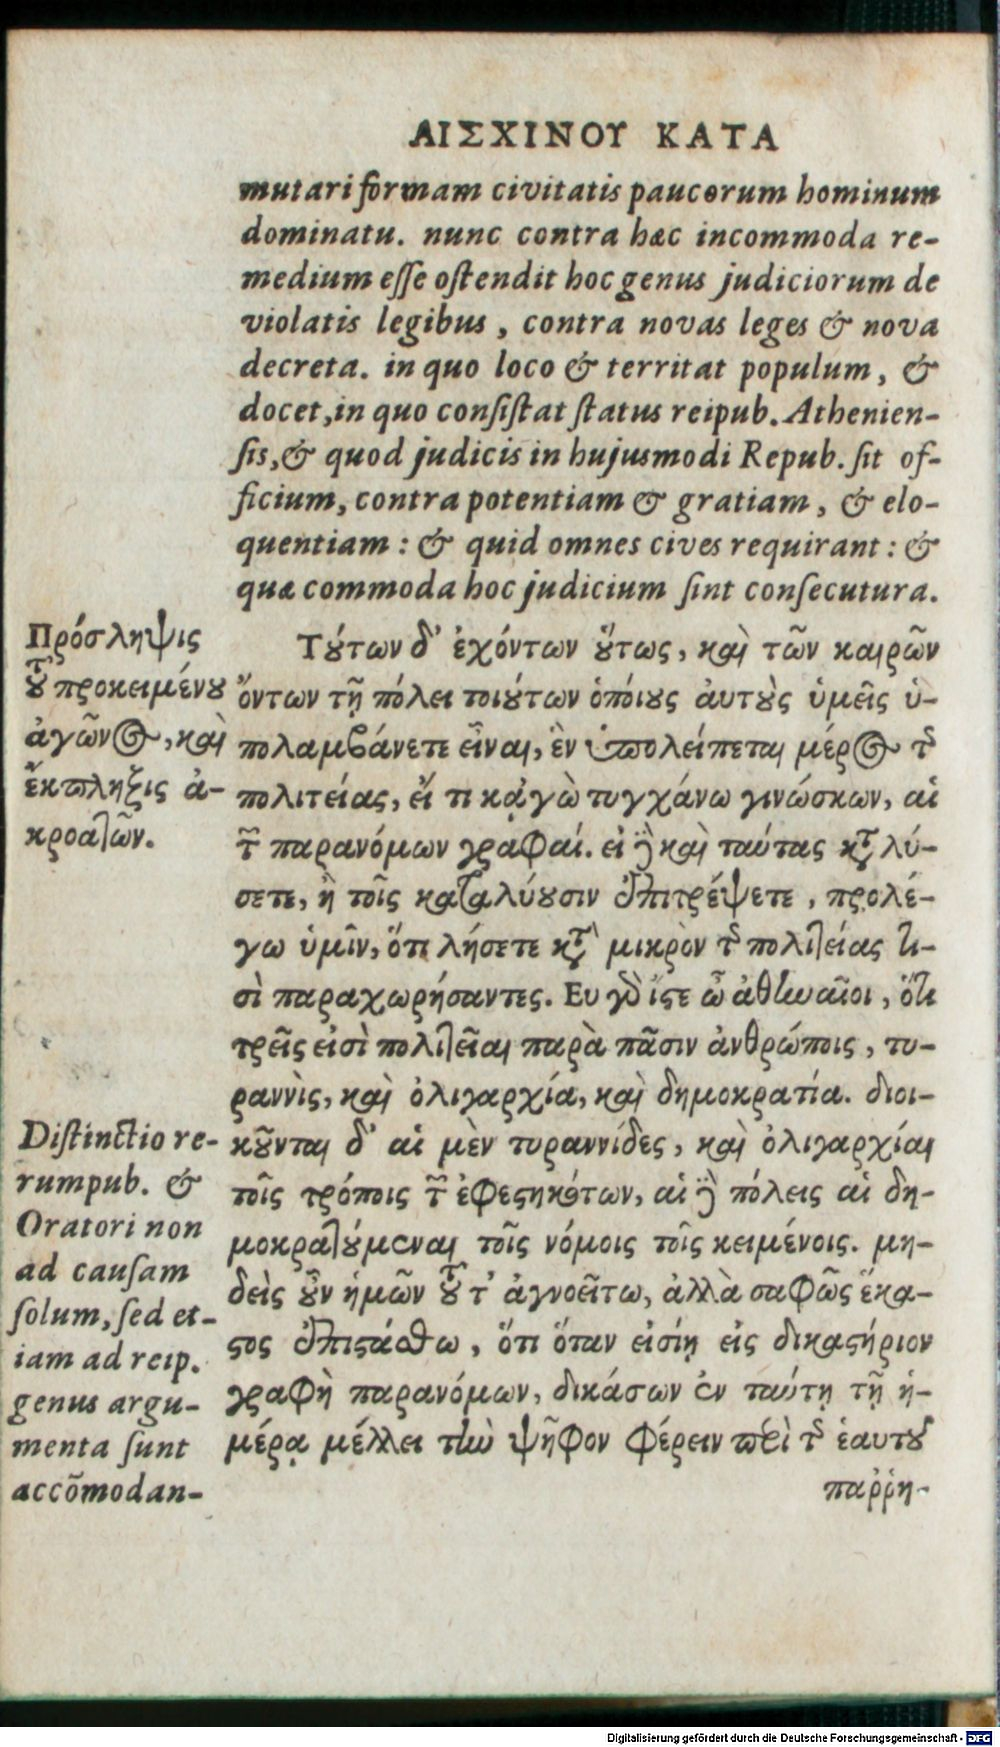 ΑΙΣΧΙΝΟΥ ΚΑΤΑ
mutari formam civitatis paucorum hominum
dominatu. nunc contra hæc incommoda re-
medium esse ostendit hoc genus judiciorum de
violatis legibus, contra novas leges & nova
decreta. in quo loco & territat populum, &
docet, in quo consistat status reipub. Athenien-
sis, & quod judicis in hujusmodi Repub. sit of-
ficium, contra potentiam & gratiam, & elo-
quentiam: & quid omnes cives requirant: &
quæ commoda hoc judicium sint consecutura.
Πρόσληψις
τοῦ προκειμένου
ἀγῶνος, καὶ
ἔκπληξις ἀ-
κροατῶν.
Τούτων δ' ἐχόντων οὕτως, καὶ τῶν καιρῶν
ὄντων τῇ πόλει τοιούτων ὁποίους αὐτοὺς ὑμεῖς ὑ-
πολαμβάνετε εἶναι, ἓν ὑπολείπεται μέρος τῆς
πολιτείας, εἴ τι κᾀγὼ τυγχάνω γινώσκων, αἱ
τῶν παρανόμων γραφαί. εἰ δὲ καὶ ταύτας κατα λύ-
σετε, ἢ τοῖς καταλύουσιν ἐπιτρέψετε, προλέ-
γω ὑμῖν, ὅτι λήσετε κατὰ μικρὸν τῆς πολιτείας τι-
σὶ παραχωρήσαντες. Εὖ γὰρ ἴστε ὦ ἀθηναῖοι, ὅτι
τρεῖς εἰσὶ πολιτεῖαι παρὰ πᾶσιν ἀνθρώποις, τυ-
ραννὶς, καὶ ὀλιγαρχία, καὶ δημοκρατία. διοι-
κοῦνται δ' αἱ μὲν τυραννίδες, καὶ ὀλιγαρχίαι
τοῖς τρόποις τῶν ἐφεστηκότων, αἱ δὲ πόλεις αἱ δη-
μοκρατούμεναι τοῖς νόμοις τοῖς κειμένοις. μη-
δεὶς οὖν ἡμῶν τοῦτ' ἀγνοείτω, ἀλλὰ σαφῶς ἕκα-
στος ἐπιστάσθω, ὅτι ὅταν εἰσίῃ εἰς δικαστήριον
γραφὴ παρανόμων, δικάσων ἐν ταύτῃ τῇ ἡ-
μέρᾳ μέλλει τὴν ψῆφον φέρειν περὶ τῆς ἑαυτοῦ
παῤῥη-
Distinctio re-
rumpub. &
Oratori non
ad causam
solum, sed et-
iam ad reip.
genus argu-
menta sunt
accõmodan-
Digitalisierung gefördert durch die Deutsche Forschungsgemeinschaft - DFG